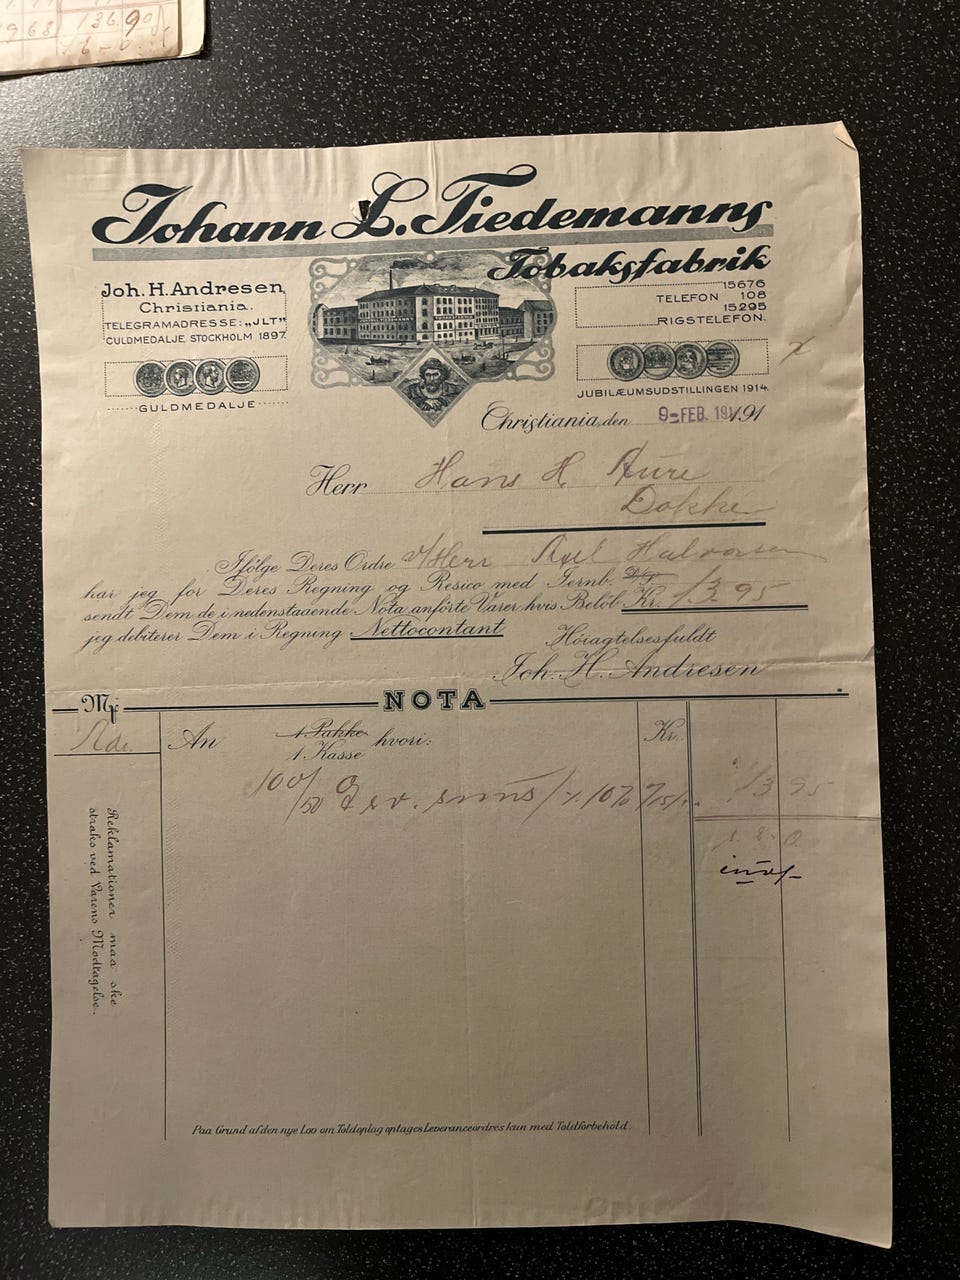 136.90
968
Johann L. Tiedemanns
Tobaksfabrik
Joh. H. Andresen
Christiania.
TELEGRAMADRESSE: „JLT"
GULDMEDALJE STOCKHOLM 1897.
GULDMEDALJE
15676
TELEFON 108
15295
RIGSTELEFON.
x
JUBILÆUMSUDSTILLINGEN 1914.
Christiania, den 9-FEB. 191
Herr Hans H. Aure
Dokke
Ifølge Deres Ordre v/Herr Axel Halvorsen
har jeg for Deres Regning og Resico med Jernb.
sendt Dem de i nedenstaaende Nota anförte Varer hvis Belöb Kr. 13 95
jeg debiterer Dem i Regning Nettocontant
Höiagtelsesfuldt
Joh. H. Andresen
NOTA
Mrk:
Adr.
An
1 Pakke
1 Kasse hvori:
Kr.
100/50 10% 13 95
1 8 0
Reklamationer maa ske
straks ved Varens Modtagelse.
Paa Grund af den nye Lov om Toldoplag optages Leveranceordres kun med Toldforbehold.